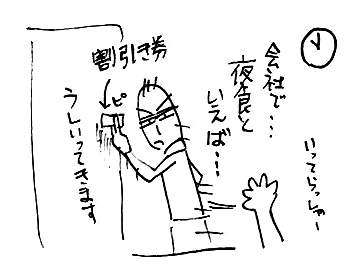 会社で…
夜食と
いえば…
割引き券
ピ
うしいってきます
いってらっしゃー